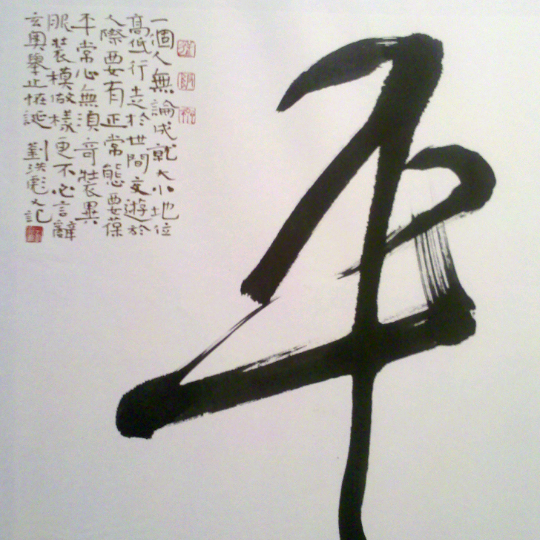 平
一個人無論成就大小地位
高低行走於世間交遊於
人際要有正常態要保
平常心無須奇裝異
服裝模做樣更不必言辭
玄奧舉止怪誕 劉洪彪又記